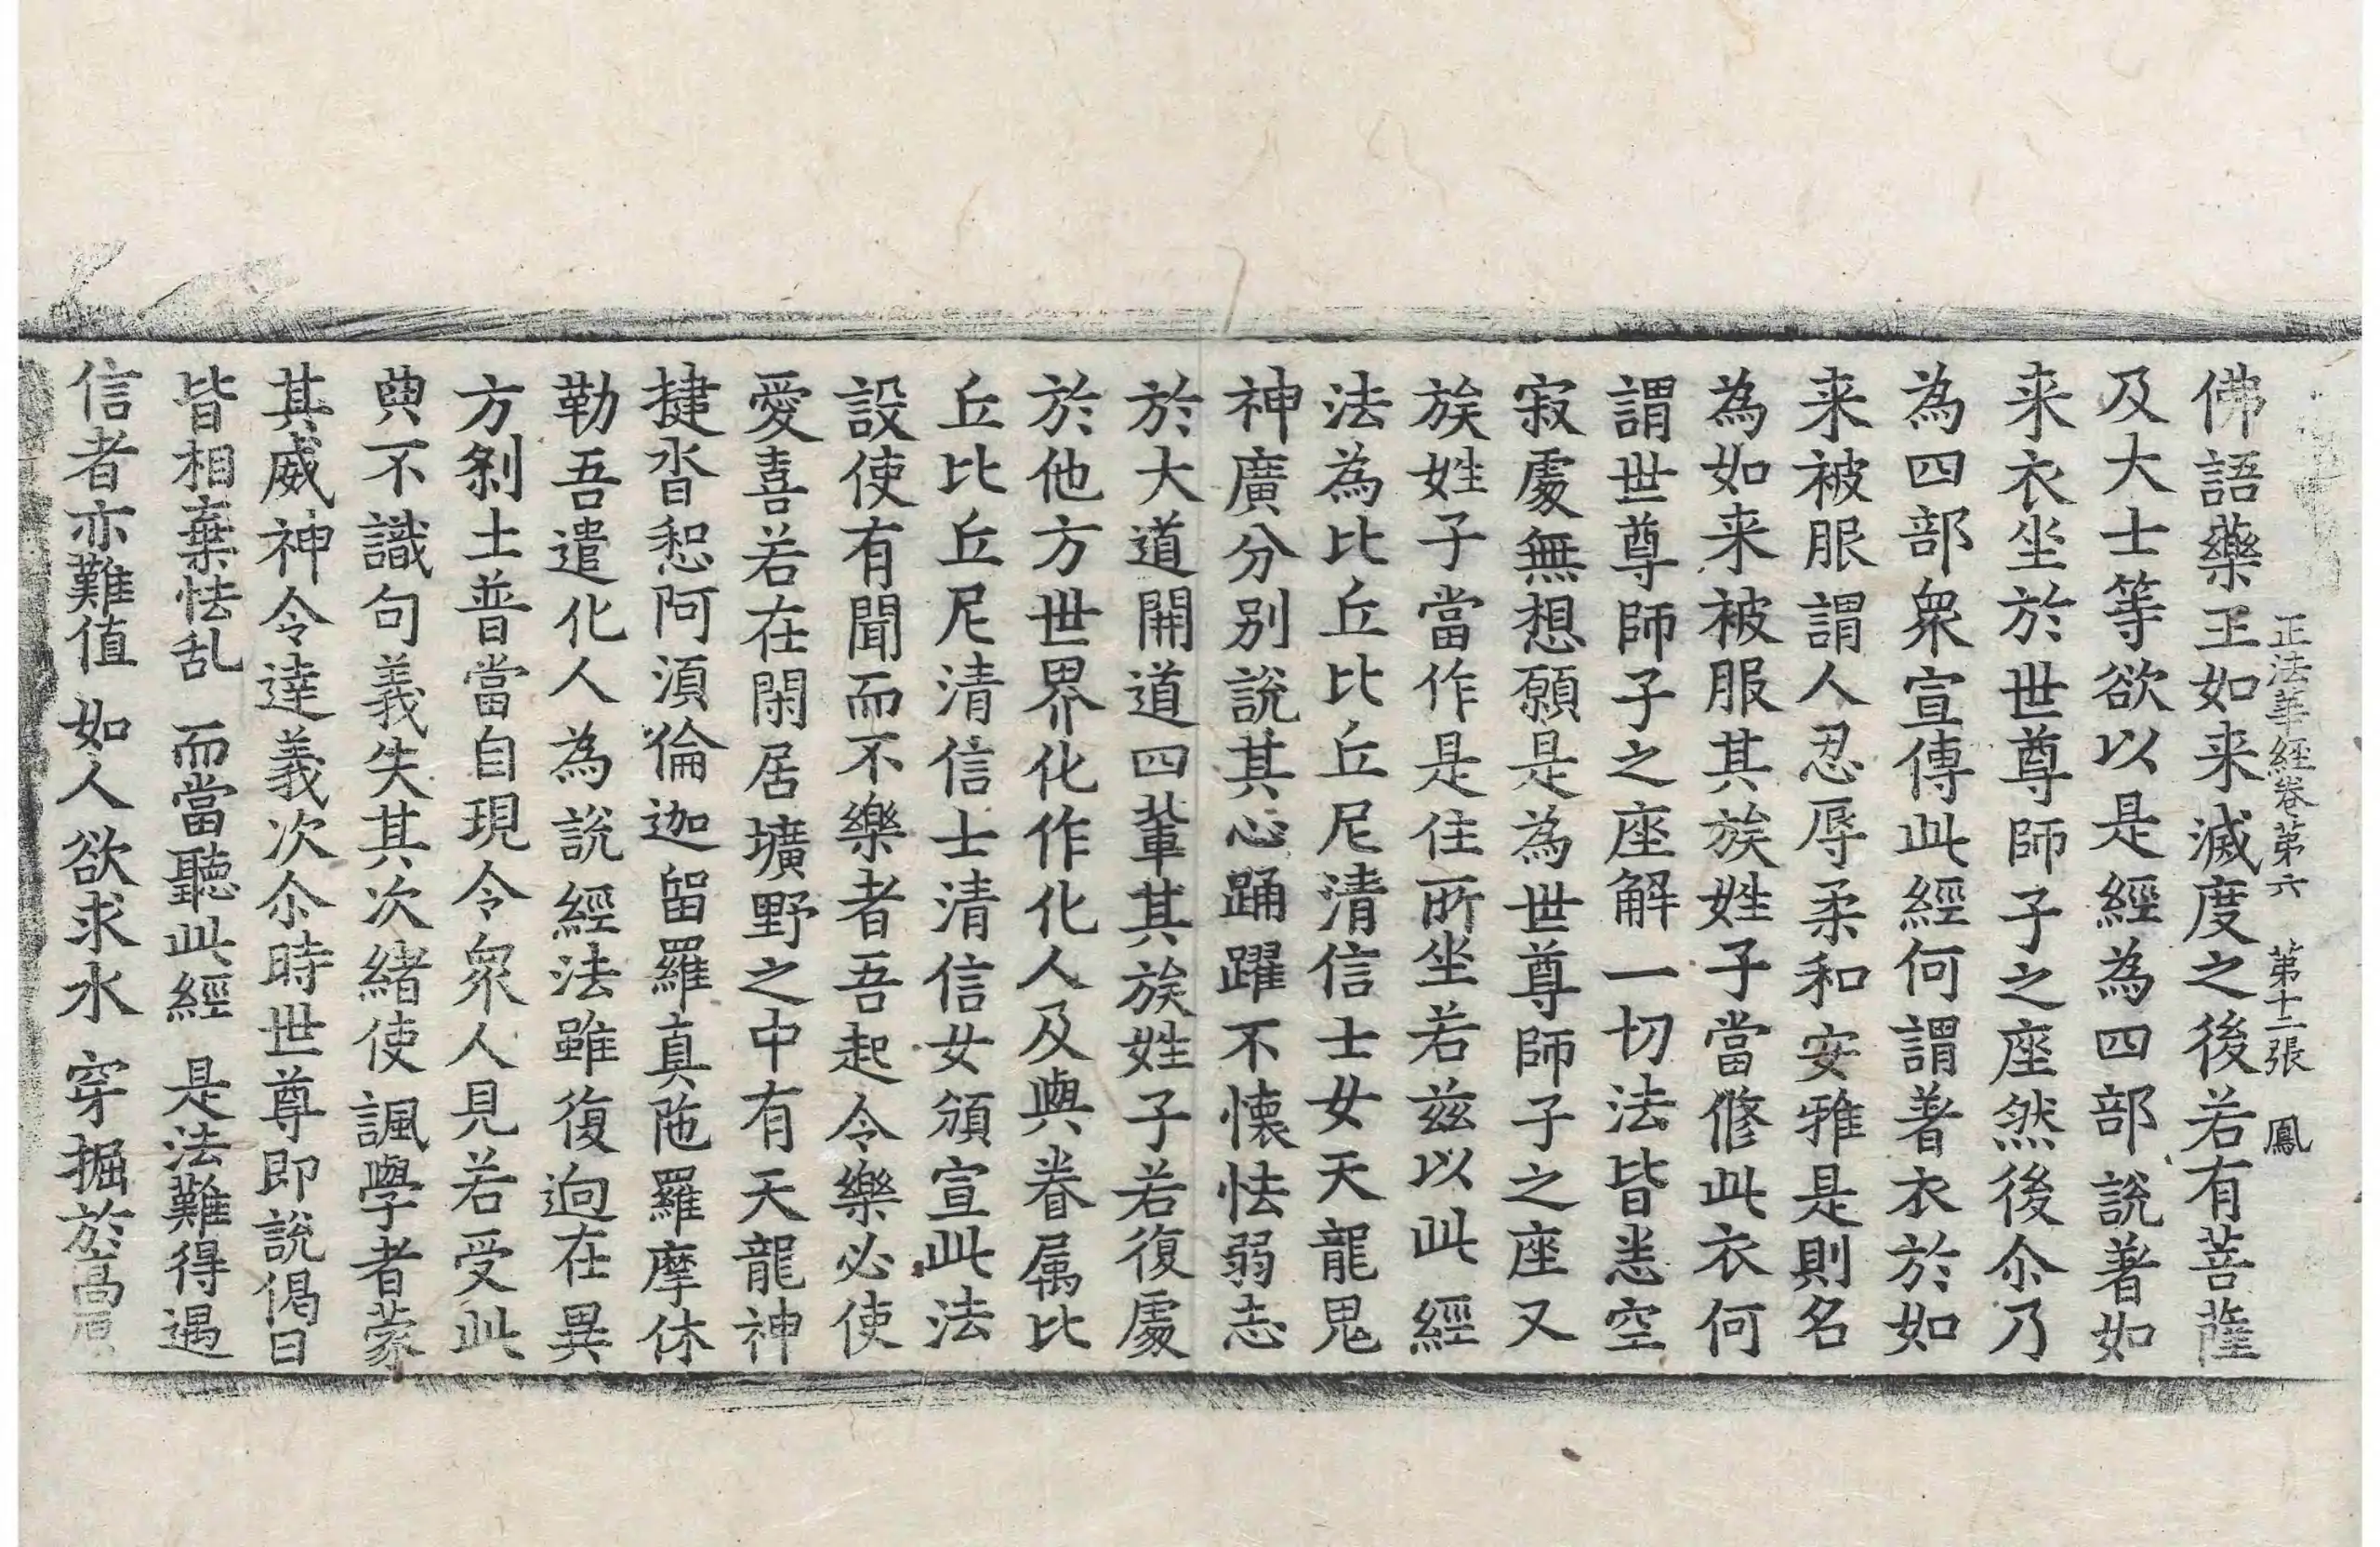 正法華經卷第六　第十二張　鳳
佛語藥王如来滅度之後若有菩薩
及大士等欲以是經為四部說著如
来衣坐於世尊師子之座然後尒乃
為四部衆宣傳此經何謂著衣於如
来被服謂人忍辱柔和安雅是則名
為如来被服其族姓子當修此衣何
謂世尊師子之座解一切法皆悉空
寂處無想願是為世尊師子之座又
族姓子當作是住所坐若兹以此經
法為比丘比丘尼清信士女天龍鬼
神廣分别說其心踊躍不懷怯弱志
於大道開道四輩其族姓子若復處
於他方世界化作化人及與眷属比
丘比丘尼清信士清信女頒宣此法
設使有聞而不樂者吾起令樂必使
愛喜若在閑居壙野之中有天龍神
揵沓惒阿湏倫迦留羅真陁羅摩休
勒吾遣化人為說經法雖復逈在異
方刹土普當自現令衆人見若受此
典不識句義失其次緒使諷學者蒙
其威神令達義次尒時世尊即說偈曰
皆相棄怯乱　而當聽此經　是法難得遇
信者亦難值　如人欲求水　穿掘於高原